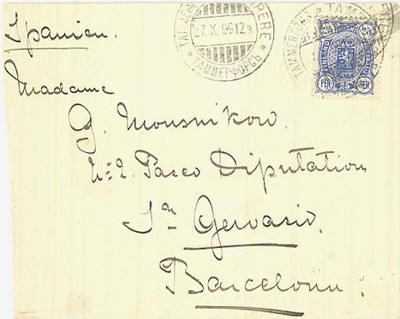 Spanien.
TAMMERFORS TAMPERE
27.X.96 12
ТАММЕРФОРСЪ
25 25
PEN
Madame
G. Mousnikow.
Nº 2. Paseo Diputation
Sn Gervasio.
Barcelona.